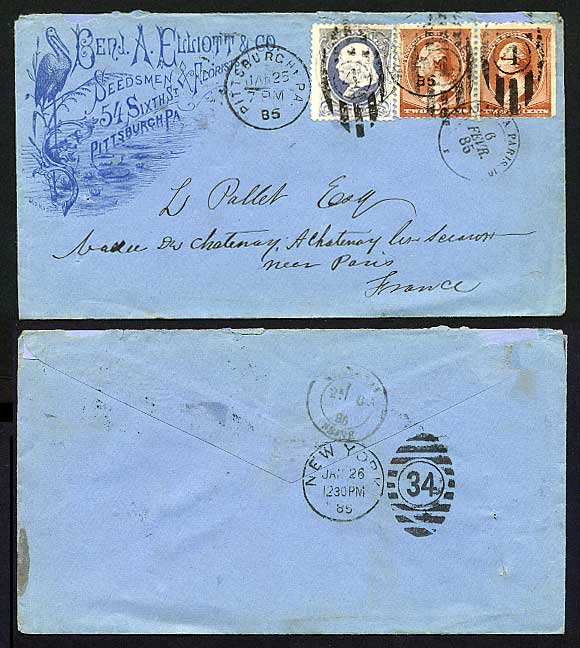 BENJ. A. ELLIOTT & CO.
SEEDSMEN & FLORISTS
54 SIXTH ST
PITTSBURGH, PA
PITTSBURGH, PA.
JAN 25
7 PM
85
4
85
4
PARIS
6
FEVR.
85
L Pallet Esq
Chatenay, A Chatenay les
near Paris
France
NEW YORK
JAN 26
1230PM
85
34